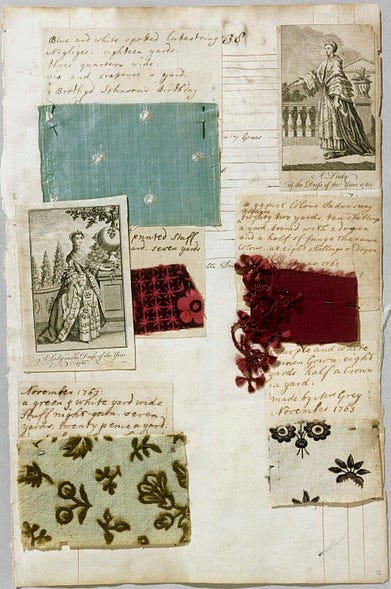 Blue and white spotted Lutestring
Negligee. eighteen yards.
three quarters wide
six and sixpence a yard.
Brothyd Johnson's Birthday
38
A Lady
in the Dress of the Year 1762
printed Stuff
yard. seven yards
a garnet Colour Paduasway
twenty two yards
a yard. trim'd with a dozen
and a half of fringe the same
Colour at eight shillings a dozen
1762
A Lady in the Dress of the Year
1762
purple and white
Linnen Gown. eight
yards half a Crown
a yard.
made by Mrs Grey
November 1763
November 1763.
a green & white yard wide
Stuff night gown. seven
yards. twenty pence a yard.